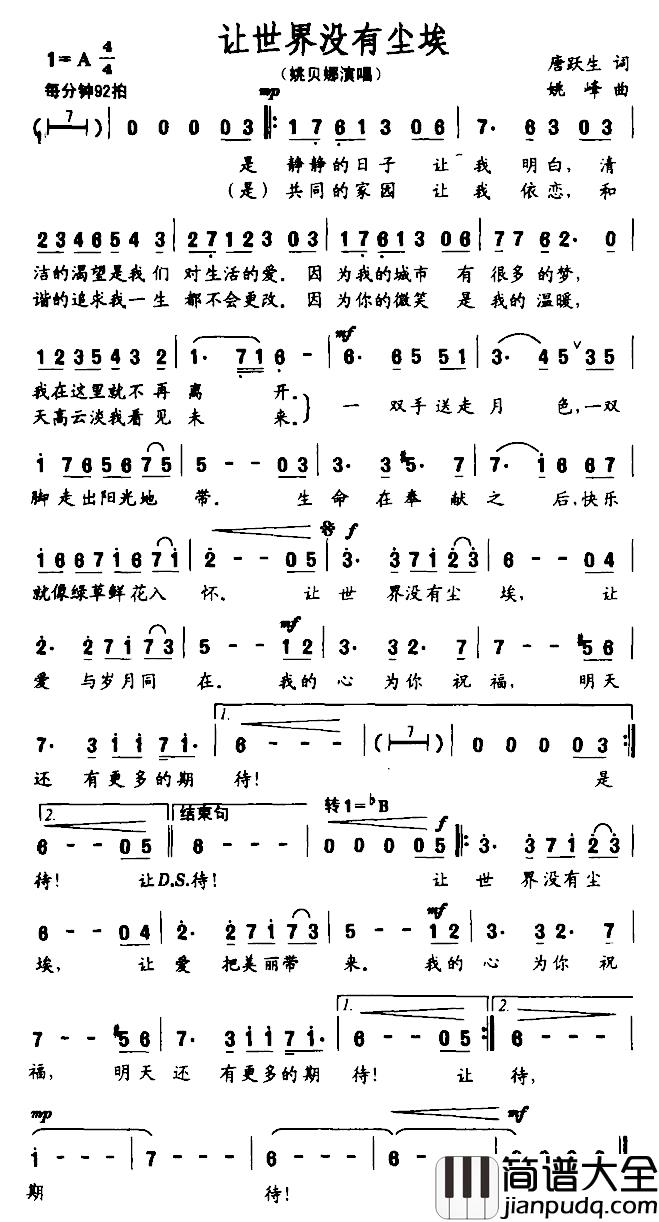 让世界没有尘埃
1=A 4/4
(姚贝娜演唱)
唐跃生 词
每分钟92拍
姚 峰 曲
mp
(7) 0 0 0 03 ‖: 176 13 06 | 7· 63 03 |
是 静静的日子 让 我 明白,清
(是)共同的家园 让 我 依恋,和
2346543 | 2712303 | 1761306 | 77 62· 0
洁的渴望是我们 对生活的爱。因 为我的城市 有 很多 的梦,
谐的追求我一生 都不会更改。因 为你的微笑 是 我的 温暖,
mf
1235432 | 1· 716 - | 6· 65 551 | 3· 45 ∨35
我在这里就不再 离 开。
天高云淡我看见 未 来。} 一 双手送走月 色,一双
1 7656 75 | 5 - - 03 | 3· 3 #5· 7 | 7· 1 6 67 |
脚走出阳光地 带。 生 命 在奉 献之 后,快乐
f
1667 16 71 | 2 - - 05 | 3· 371 23 | 6 - - 04 |
就像绿草鲜花入 怀。 让 世 界没有尘 埃, 让
mf
2· 271 73 | 5 - - 12 | 3· 3 2· 7 | 7 - - #56 |
爱 与岁月同 在。 我的 心 为你 祝 福, 明天
1.
7· 311 71· | 6 - - - | (7) | 0 0 0 03 :‖
还 有更多的期 待! 是
2.
结束句
转1=♭B
f
6 - - 05 ‖ 6 - - - | 0 0 0 05 ‖: 3· 371 23 |
待! 让D.S.待! 让 世 界没有尘
mf
6 - - 04 | 2· 271 73 | 5 - - 12 | 3· 3 2· 7 |
埃, 让 爱 把美丽带 来。 我的 心 为你 祝
1.
2.
7 - - #56 | 7· 311 71· | 6 - - 05 :‖ 6 - - - |
福, 明天 还 有更多的期 待! 让 待,
mp
mf
1 - - - | 7 - - - | 6 - - - | 6 - - -
期 待!
简谱大全
jianpudq.com